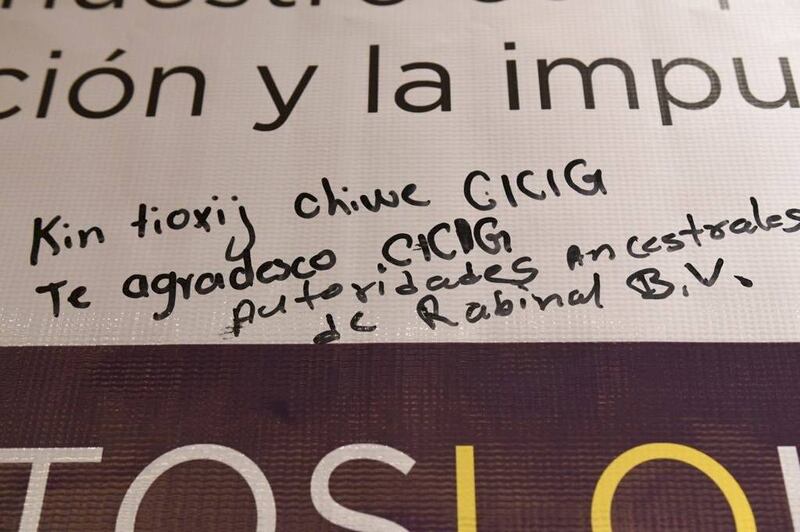 nuestro
ción y la impu
Kin tioxij chiwe CICIG
Te agradesco CICIG
Autoridades Ancestrales
de Rabinal B.V.
TOSLO